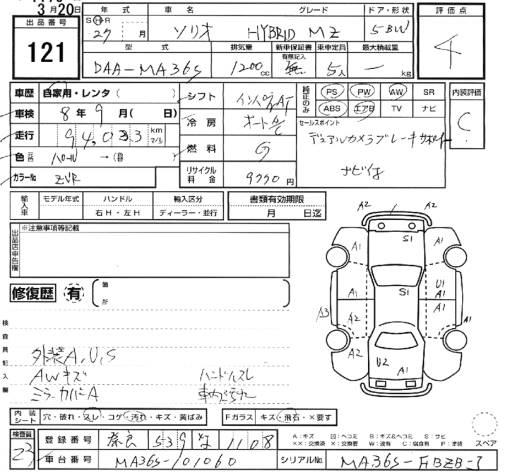 3月20日
出品番号 年式 車名 グレード ドア・形状 評価点
121
S H R 27 月 ソリオ HYBRID MZ 5BW 4
型式 排気量 新車保証書 有無記入 乗車定員 最大積載量
DAA-MA36S 1200cc 無 5人 — kg
車歴 自家用・レンタ( ) シフト インパネAT 純正のみ PS PW AW SR 内装評価
ABS エアB TV ナビ C
車検 8年9月( 日) 冷房 オートAC セールスポイント
走行 94,033 km マイル デュアルカメラブレーキサポート
色 パール →( ) 燃料 G ナビ付
カラーNo ZVR リサイクル料金 9990円
輸入車 モデル年式 ハンドル 輸入区分 書類有効期限
右H・左H ディーラー・並行 月 日迄
出品店申告欄 ※注意事項等記載
修復歴 有 箇所
検査員記入欄
外装A,U,S
AWキズ ハンドルスレ
ミラーカバーA
A2 A2
S1
A1 A1
A1 S1 U1 A1
A3 A2 A1
A2 U2 A1
A2
内装シート 穴・破れ・スレ・コゲ・汚れ・キズ・黄ばみ Fガラス キズ・飛石・×要す
A:キズ U:ヘコミ B:キズ&ヘコミ S:サビ
スペア
検査員 23 登録番号 奈良 539 な 1108
車台番号 MA36S-101060 シリアルNo.